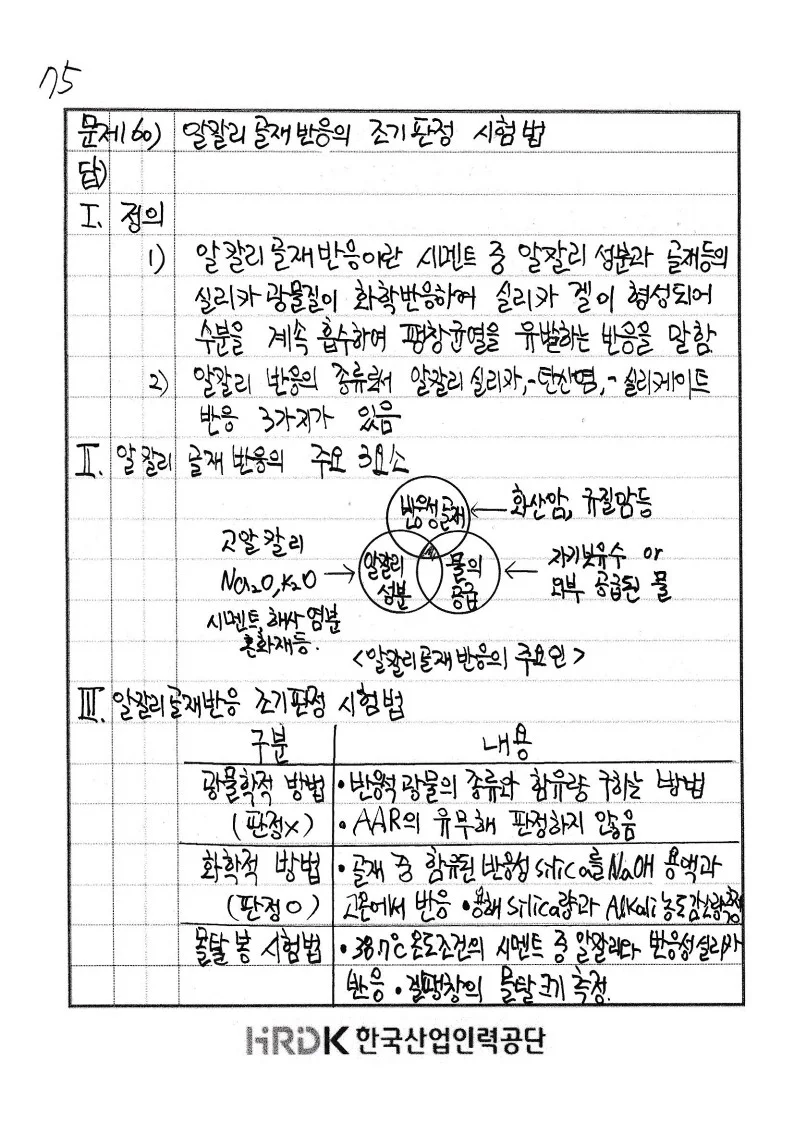 75
문제160) 알칼리골재반응의 조기판정 시험법
답)
I. 정의
1) 알칼리골재반응이란 시멘트 중 알칼리 성분과 골재등의
실리카 광물질이 화학반응하여 실리카 겔이 형성되어
수분을 계속 흡수하여 팽창균열을 유발하는 반응을 말함
2) 알칼리 반응의 종류로서 알칼리실리카,-탄산염,-실리케이트
반응 3가지가 있음
II. 알칼리 골재반응의 주요 3요소
반응성골재 ← 화산암, 규질암등
고알칼리
Na₂O, K₂O →
시멘트, 해사 염분
혼화재등.
알칼리
성분
물의
공급
← 자기보유수 or
외부 공급된 물
<알칼리골재반응의 주요인>
III. 알칼리골재반응 조기판정 시험법
구분 내용
광물학적 방법 • 반응적 광물의 종류와 함유량 구하는 방법
(판정X) • AAR의 유무해 판정하지 않음
화학적 방법 • 골재 중 함유된 반응성 silica를 NaOH 용액과
(판정O) 고온에서 반응 • 용해 silica량과 Alkali 농도감소량
몰탈 봉 시험법 • 38.7℃ 온도조건의 시멘트 중 알칼리와 반응성실리카
반응 • 겔팽창의 몰탈크기 측정.
HRDK 한국산업인력공단